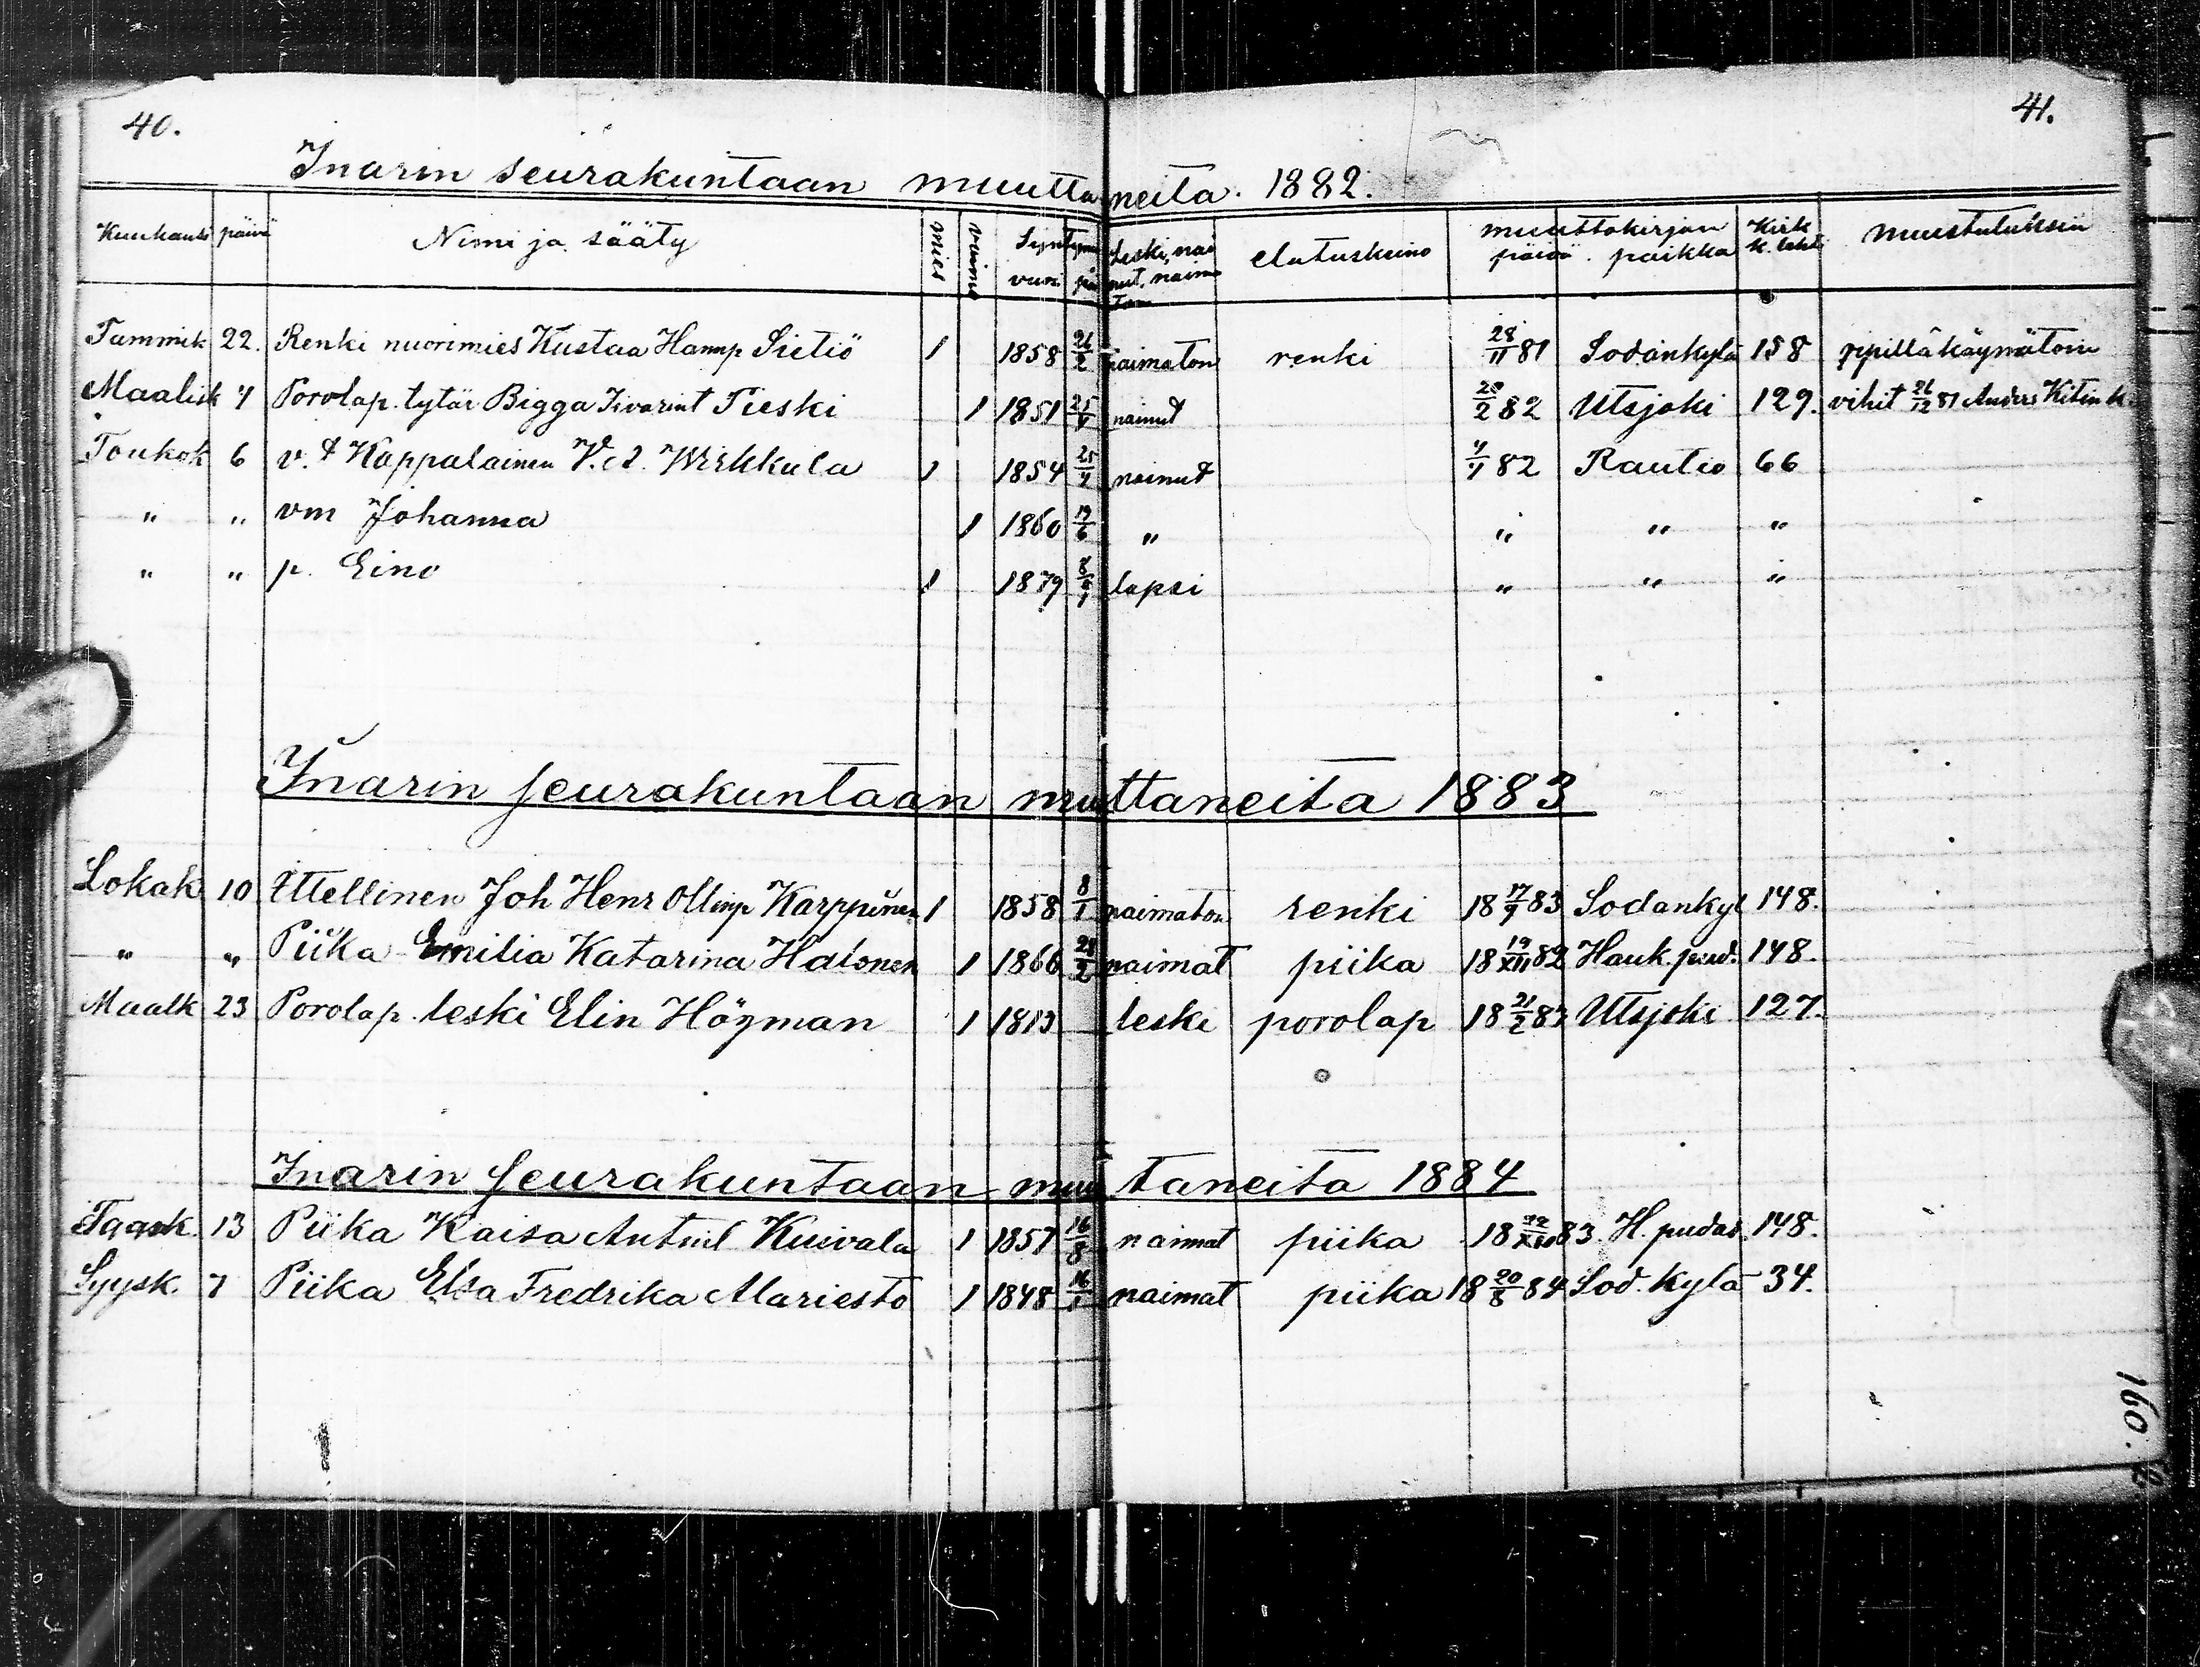 40.
41.
Inarin seurakuntaan muuttaneita. 1882.
Kuukausi päivä Nimi ja sääty mies vaimo Syntymä vuosi pä Leski, nai nut, naima ton elatuskeino muuttokirjan päivä. paikka Kirk k. lehti muistutuksia
Tammik 22. Renki nuorimies Kustaa Hannup Sietiö 1 1858 26/2 naimaton renki 28/11 81 Sodankylä 158 ripillä käymätöin
Maalisk 4 Porolap. tytär Bigga Iivarint Pieski 1 1851 25/4 nainut 20/2 82 Utsjoki 129. vihit 26/12 81 Anders Kitin k.
Toukok 6 v. t Kappalainen V. A. Wirkkula 1 1854 25/4 nainut 4/4 82 Rautio 66
" " vm Johanna 1 1860 19/6 " " " "
" " p. Eino 1 1879 8/9 lapsi " " "
Inarin seurakuntaan muuttaneita 1883
Lokak 10 Ittellinen Joh Henr Ollinp Karppinen 1 1858 8/1 naimaton renki 18 17/9 83 Sodankyl 148.
" " Piika Emilia Katarina Halonen 1 1866 28/2 naimat piika 18 19/XII 82 Hauk. pud. 148.
Maalk 23 Porolap. leski Elin Högman 1 1813 leski porolap 18 21/2 83 Utsjoki 127.
Inarin seurakuntaan muutaneita 1884
13 Piika Kaisa Kuivala 1 1857 16/8 naimat piika 18 83. H. pudas 148.
Syysk. 7 Piika Elsa Fredrika Mariesto 1 1848 16/1 naimat piika 18 20/8 84 Sod. kylä 34.
160.